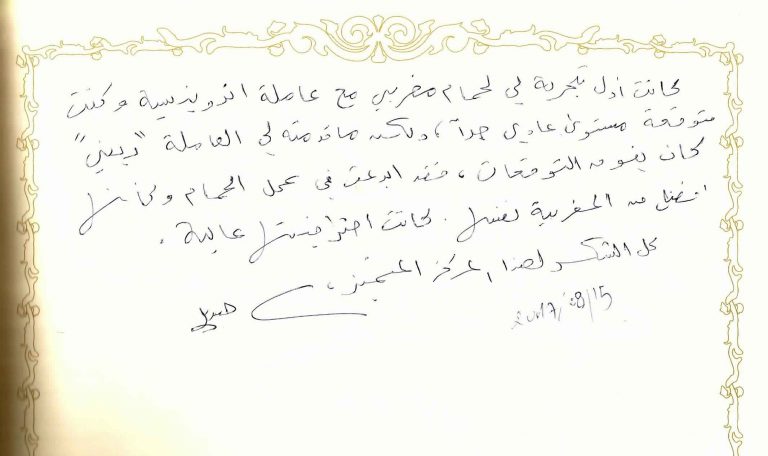 كانت أول تجربة لي لحمام مغربي مع عاملة اندونيسية وكنت
متوقعة مستوى عادي جداً، ولكن ماقدمته لي العاملة "ديني"
كان يفوق التوقعات، فقد ابدعت في عمل الحمام وكأنها
افضل من المغربية نفسها. كانت احترافيتها عالية.
كل الشكر لهذا المركز المتميز،
هديل
2017/08/15